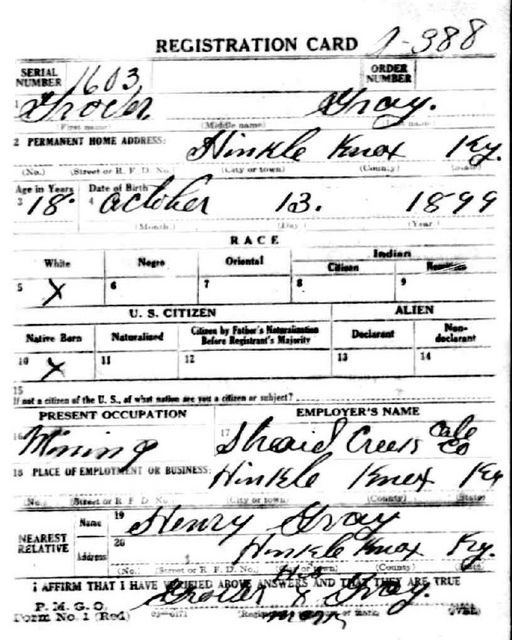 REGISTRATION CARD 1-388
SERIAL NUMBER 1603 ORDER NUMBER
1 Grover Gray.
(First name) (Middle name) (Last name)
2 PERMANENT HOME ADDRESS: Hinkle Knox Ky.
(No.) (Street or R. F. D. No.) (City or town) (County) (State)
Age in Years Date of Birth
3 18 4 October 13. 1899
(Month.) (Day.) (Year.)
RACE
White Negro Oriental Indian
Citizen
5 X 6 7 8 9
U. S. CITIZEN ALIEN
Native Born Naturalized Citizen by Father's Naturalization Before Registrant's Majority Declarant Non-declarant
10 X 11 12 13 14
15
If not a citizen of the U. S., of what nation are you a citizen or subject?
PRESENT OCCUPATION EMPLOYER'S NAME
16 Mining 17 Creek Co
18 PLACE OF EMPLOYMENT OR BUSINESS: Hinkle Knox Ky
(No.) (Street or R. F. D. No.) (City or town) (County) (State)
NEAREST RELATIVE Name 19 Henry Gray
Address 20 Hinkle Knox Ky.
(No.) (Street or R. F. D. No.) (City or town) (County) (State)
I AFFIRM THAT I HAVE VERIFIED ABOVE ANSWERS AND THAT THEY ARE TRUE
P. M. G. O.
Form No. 1 (Red) 03-6171 Grover X Gray.
his mark